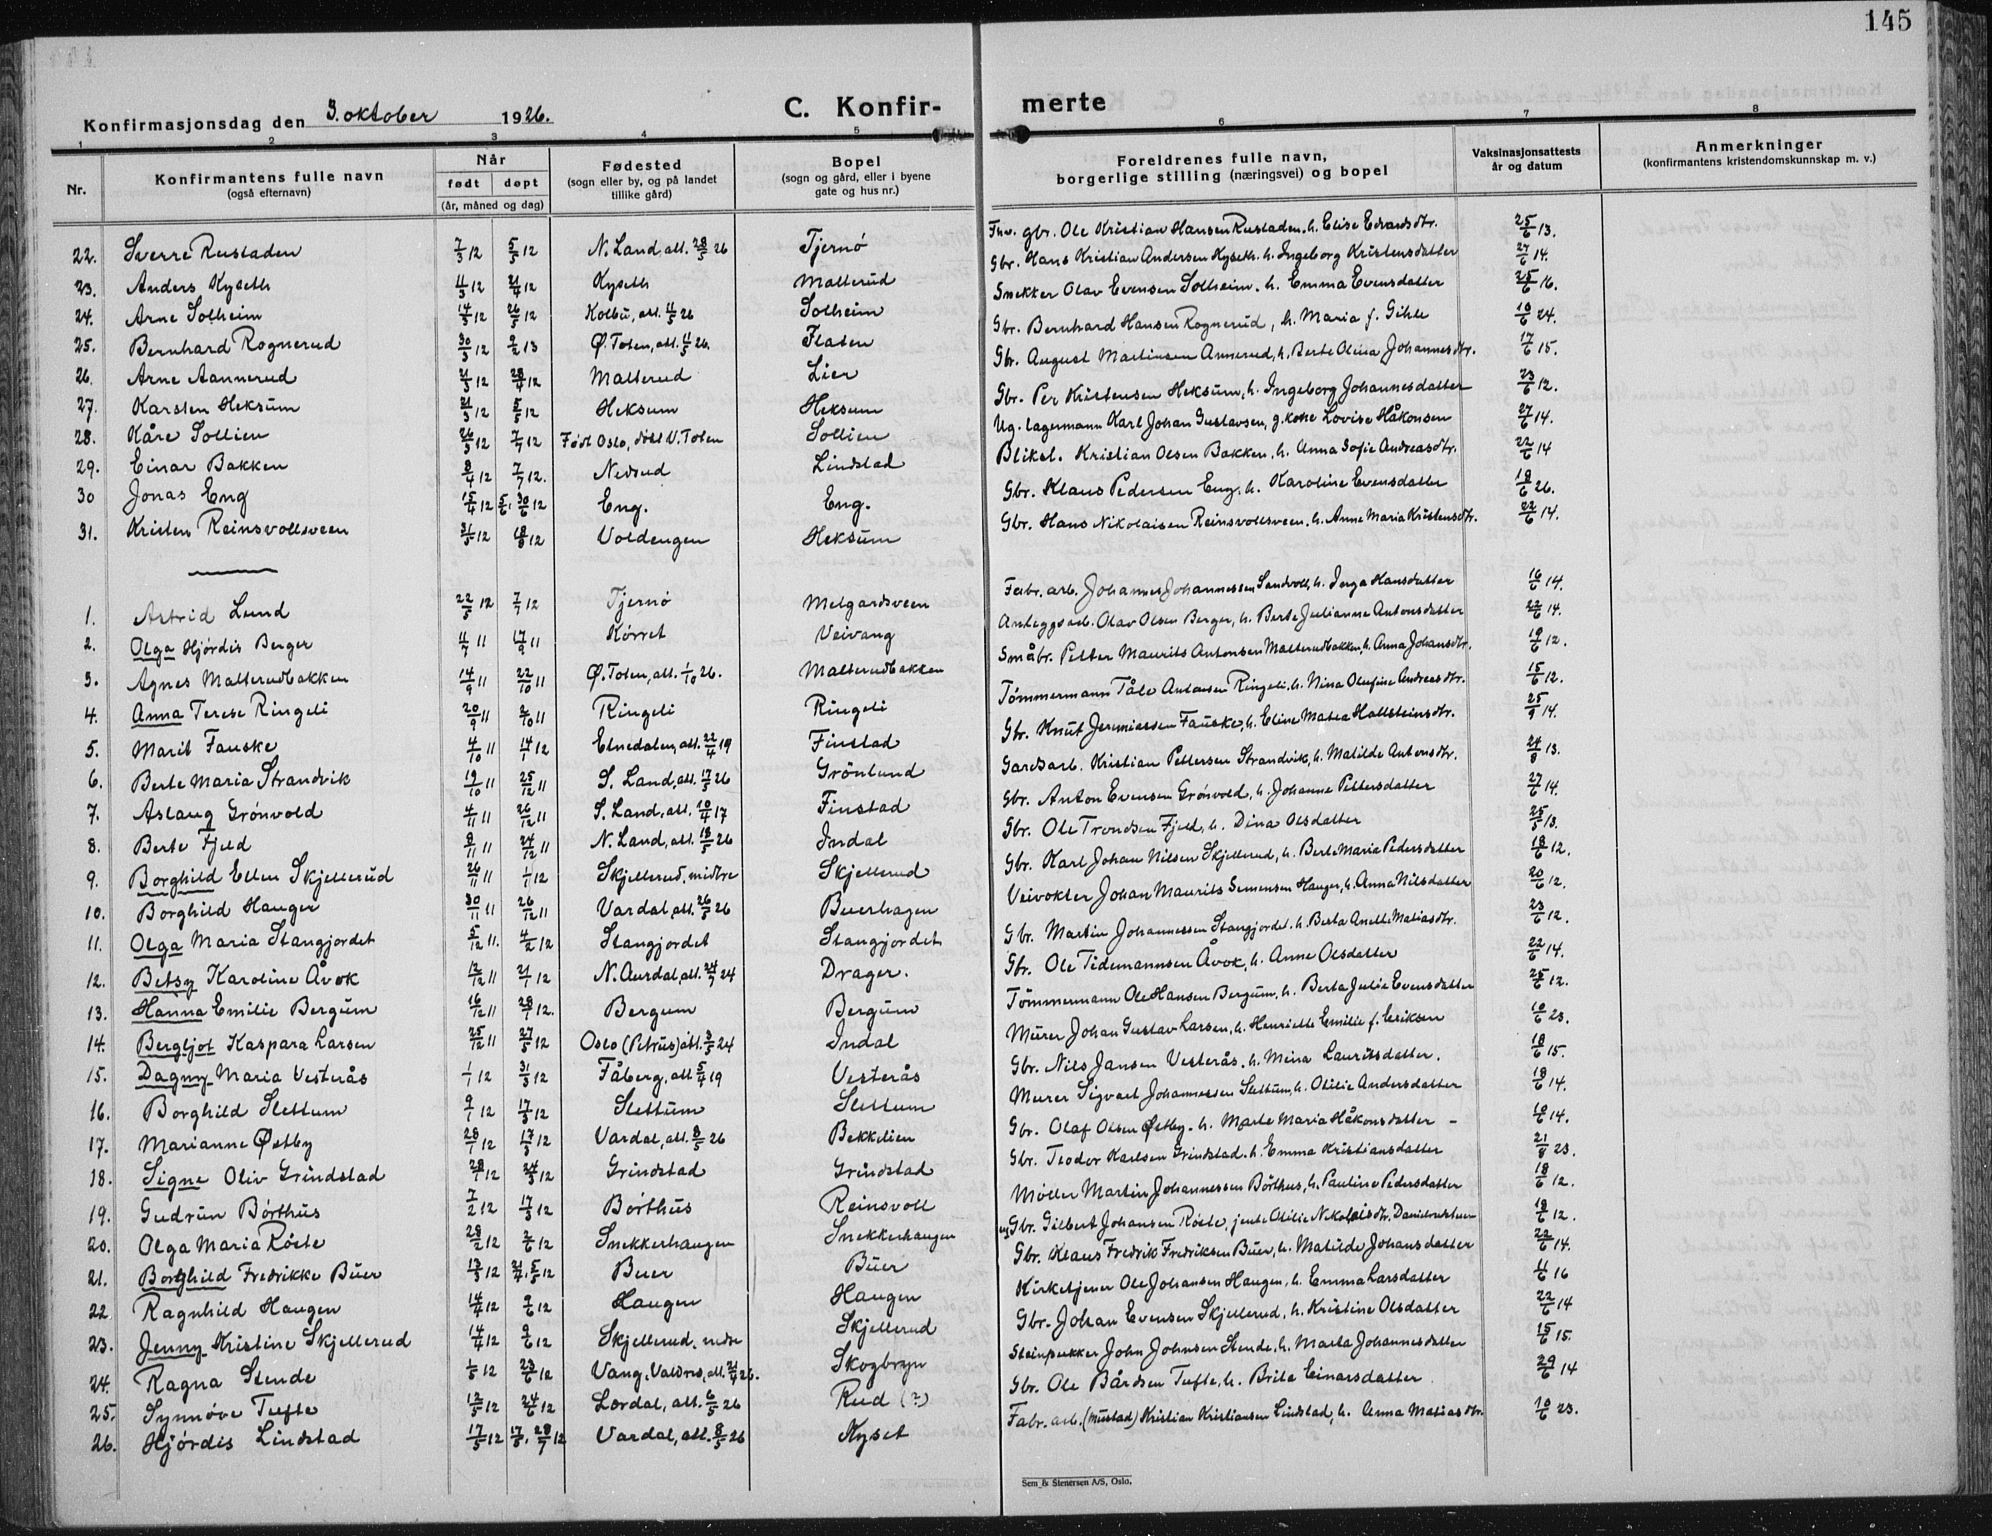 145
Konfirmasjonsdag den 3. oktober 1926.
C. Konfir-merte
1 2 3 4 5 6 7 8
Nr. | Konfirmantens fulle navn (også efternavn) | Når født døpt (år, måned og dag) | Fødested (sogn eller by, og på landet tillike gård) | Bopel (sogn og gård, eller i byene gate og hus nr.) | Foreldrenes fulle navn, borgerlige stilling (næringsvei) og bopel | Vaksinasjonsattests år og datum | Anmerkninger (konfirmantens kristendomskunnskap m. v.)
22. Sverre Rustaden 7/3 12 5/5 12 N. Land, att. 28/5 26 Tjernö gbr. Ole Kristian Hansen Rustaden, h. Elise Evardsdtr. 25/6 13.
23. Anders Kyseth 11/3 12 21/4 12 Kyseth Malterud Gbr. Hans Kristian Andersen Kyseth. h. Ingeborg Kristensdatter 27/6 14.
24. Arne Solheim 14/3 12 26/5 12 Kolbu, att. 11/5 26 Solheim Snekker Olav Evensen Solheim. h. Emma Evensdatter 25/6 16.
25. Bernhard Rognerud 30/3 12 9/2 13 Ø. Toten, att. 11/5 26. Flaten Gbr. Bernhard Hansen Rognerud, h. Maria f. Gihle 10/6 24.
26. Arne Aannerud 21/3 12 28/4 12 Malterud Lier Gbr. August Martinsen Annerud, h. Berte Olina Johannesdtr. 17/6 15.
27. Karsten Heksum 21/3 12 5/5 12 Heksum Heksum Gbr. Per Kristensen Heksum, h. Ingeborg Johannesdatter 23/6 12.
28. Kåre Sollien 26/3 12 7/7 12 Født Oslo, døbt V. Toten Sollien Ug. lagermann Karl Johan Gustavsen, g. kone Lovise Håkonsen 27/6 14.
29. Einar Bakken 8/4 12 7/7 12. Nedrud Lindstad Bliksl. Kristian Olsen Bakken, h. Anna Sofie Andreasdtr. 22/6 14
30 Jonas Eng 15/4 12 30/6 12 Eng. Eng. Gbr. Klaus Pedersen Eng, h. Karoline Evensdatter 18/6 26.
31. Kristen Reinsvollsveen 31/5 12 18/8 12 Voldengen Heksum Gbr. Hans Nikolaisen Reinsvollsveen, h. Anne Maria Kristensdtr. 22/6 14.
1. Astrid Lund 22/5 12 7/7 12 Tjernö Melgardsveen Fabr. arb. Johannes Johannessen Sandvoll, h. Inga Hansdatter 16/6 14.
2. Olga Hjördis Berger 11/7 11 17/9 11 Körret Veivang Anleggsarb. Olav Olsen Berger, h. Berte Julianne Antonsdatter 22/6 14.
3. Agnes Malterudbakken 14/9 11 22/10 11 Ø. Toten, att. 1/10 26. Malterudbakken Småbr. Petter Maurits Antonsen Malterudbakken, h. Anna Johansdtr. 19/6 12.
4. Anna Terese Ringeli 20/9 11 8/10 11 Ringeli Ringeli Tömmermann Tåle Antonsen Ringeli, h. Nina Olufine Andreasdtr. 15/6 12.
5. Marit Fauske 4/10 11 14/1 12 Etnedalen, att. 22/4 19 Finstad Gbr. Knut Jermiessen Fauske, h. Eline Matea Hallsteinsdtr. 25/9 14.
6. Berte Maria Strandvik 19/10 11 25/12 11 S. Land, att. 17/5 26 Grönlund Gardsarb. Kristian Pettersen Strandvik, h. Matilde Antonsdtr. 24/8 13.
7. Aslaug Grönvold 4/11 11 26/12 11 S. Land, att. 10/4 17 Finstad Gbr. Anton Evensen Grönvold, h. Johanne Pettersdatter 27/6 14.
8. Berte Fjeld 8/11 11 24/12 11 N. Land, att. 18/5 26 Indal Gbr. Ole Trondsen Fjeld, h. Dina Olsdatter 25/5 13.
9. Borghild Ellen Skjellerud 26/11 11 1/1 12 Skjellerud, midtre Skjellerud Gbr. Karl Johan Nilsen Skjellerud, h. Berte Maria Pedersdatter 18/6 12.
10. Borghild Hauger 30/11 11 26/12 11 Vardal, att. 26/5 26 Buerhagen Veivokter Johan Maurits Simensen Hauger, h. Anna Nilsdatter 20/6 12.
11. Olga Maria Stangjordet 5/12 11. 4/2 12 Stangjordet Stangjordet Gbr. Martin Johannessen Stangjordet. h. Berta Anette Matiasdtr. 23/6 12.
12. Betsy Karoline Åvok 12/12 11 21/1 12 N. Aurdal, att. 24/7 24 Drager. Gbr. Ole Tidemannsen Åvok, h. Anne Olsdatter 22/6 14.
13. Hanna Emilie Bergum 16/12 11 28/1 12. Bergum Bergum Tömmermann Ole Hansen Bergum, h. Berta Julie Evensdatter 25/6 12.
14. Bergljot Kaspara Larsen 25/12 11 27/5 12 Oslo (Petrus) att. 3/5 24 Indal Murer Johan Gustav Larsen, h. Henriette Emilie f. Eriksen 10/6 23.
15. Dagny Maria Vesterås 1/1 12 31/3 12 Fåberg, att. 5/4 19 Vesterås Gbr. Nils Jansen Vesterås. h. Mina Lauritsdatter. 18/6 15.
16. Borghild Slettum 9/1 12 17/3 12 Slettum Slettum Murer Sigvart Johannessen Slettum, h. Otilie Andersdatter 18/6 14.
17. Marianne Østby 28/1 12 17/3 12 Vardal, att. 8/5 26 Bekkelien Gbr. Olaf Olsen Østby. h. Marte Maria Håkonsdatter 10/6 14.
18. Signe Oliv Grindstad 28/1 12 24/3 12 Grindstad Grindstad Gbr. Teodor Karlsen Grindstad. h. Emma Kristiansdatter 21/8 23.
19. Gudrun Börthus 7/2 12 17/3 12 Börthus Reinsvoll Møller Martin Johannessen Börthus, h. Pauline Pedersdatter 18/6 12.
20. Olga Maria Röste 28/2 12 2/6 12 Snekkerhaugen Snekkerhaugen Gbr. Gilbert Johansen Röste, jente Otilie Nikolaisdtr. 18/6 12.
21. Borghild Fredrikke Buer 13/3 12 21/4, 5/5 12 Buer Buer Gbr. Klaus Fredrik Fredriksen Buer, h. Matilde Johansdatter 22/6 14.
22 Ragnhild Haugen 14/4 12 9/6 12 Haugen Haugen Kirketjener Ole Johansen Haugen, h. Emma Larsdatter 11/6 16
23. Jenny Kristine Skjellerud 14/4 12 9/6 12 Skjellerud, nedre Skjellerud Gbr. Johan Evensen Skjellerud, h. Kristine Olsdatter 22/6 14
24. Ragna Stende 1/5 12 23/6 12 Vang, Valdres, att. 21/4 26. Skogbryn Steinpukker John Johnsen Stende, h. Marta Johannesdatter 15/6 15.
25. Synnöve Tufte 12/5 12 24/6 12 Lærdal, att. 6/5 26 Rud (?) Gbr. Ole Bårdsen Tufte, h. Brita Einarsdatter 29/6 14
26. Hjördis Lindstad 17/5 12 17/5, 28/7 12 Vardal, att. 8/5 26 Kyset Fabr. arb. (Mustad) Kristian Kristiansen Lindstad, h. Anna Matiasdtr. 10/6 23.
Sem & Stenersen A/S, Oslo.